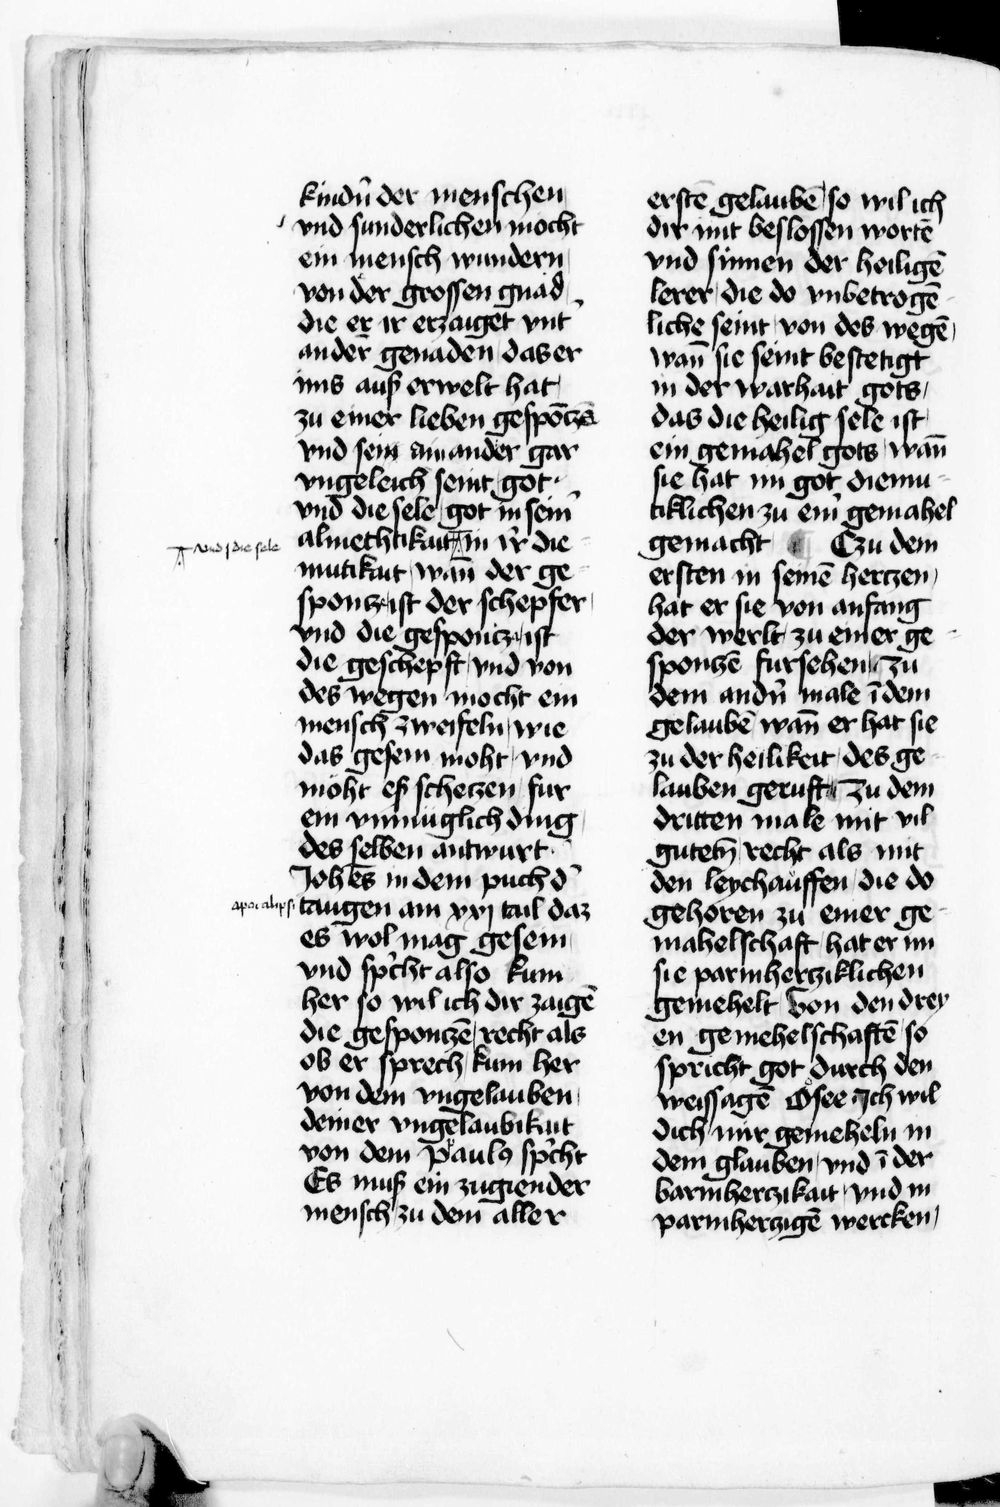 kindn̄ der menschen
vnd sunderlichen mocht
ein mensch wundern
von der grossen gnad
die er ir erzaiget vnt̄
ander genaden das er
ims auß erwelt hat
zu einer lieben gespōtzē
vnd sein ainander gar
vngeleich seint got
vnd die sele got in sein̄
almechtikait in ir̄ die
vnd i die sele
mutikait wan̄ der ge
spontz ist der schepfer
vnd die gespontz ist
die geschepft vnd von
des wegen mocht ein
mensch zweifeln wie
das gesein moht vnd
möht eß schetzen fur
ein vnmuglich ding
des selben antwurt
Joh̄es in dem puch d̄
apocalips
taugen am xxj tail daz
es wol mag gesein
vnd sp̄cht also kum
her so wil ich dir zaigē
die gespontzē recht als
ob er sprech kum her
von dem vngelauben
deiner vngelaubikait
von dem paulꝰ sp̄cht
Es muß ein zugiender
mensch zu dem aller
erstē gelaubē so wil ich
dir mit beslossen wortē
vnd sinnen der heiligē
lerer die do vnbetrogē
liche seint von des wegē
wan̄ sie seint bestetigt
in der warhait gots
das die heilig sele ist
ein gemahel gots wan̄
sie hat im got diemu
tiklichen zu ein̄ gemahel
gemacht Czu dem
ersten in seinē hertzen
hat er sie von anfang
der werlt zu einer ge
spontzē fursehen Zu
dem andn̄ male ī dem
gelaubē wan̄ er hat sie
zu der heilikeit des ge
lauben geruft Zu dem
dritten male mit vil
gutetn̄ recht als mit
den leychauffen die do
gehoren zu einer ge
mahelschaft hat er im
sie parmhertziklichen
gemehelt Von den drey
en gemehelschaftē so
spricht got durch den
weissagē Osee Ich wil
dich mir gemeheln in
dem glauben vnd ī der
barmhertzikait vnd in
parmhertzigē wercken